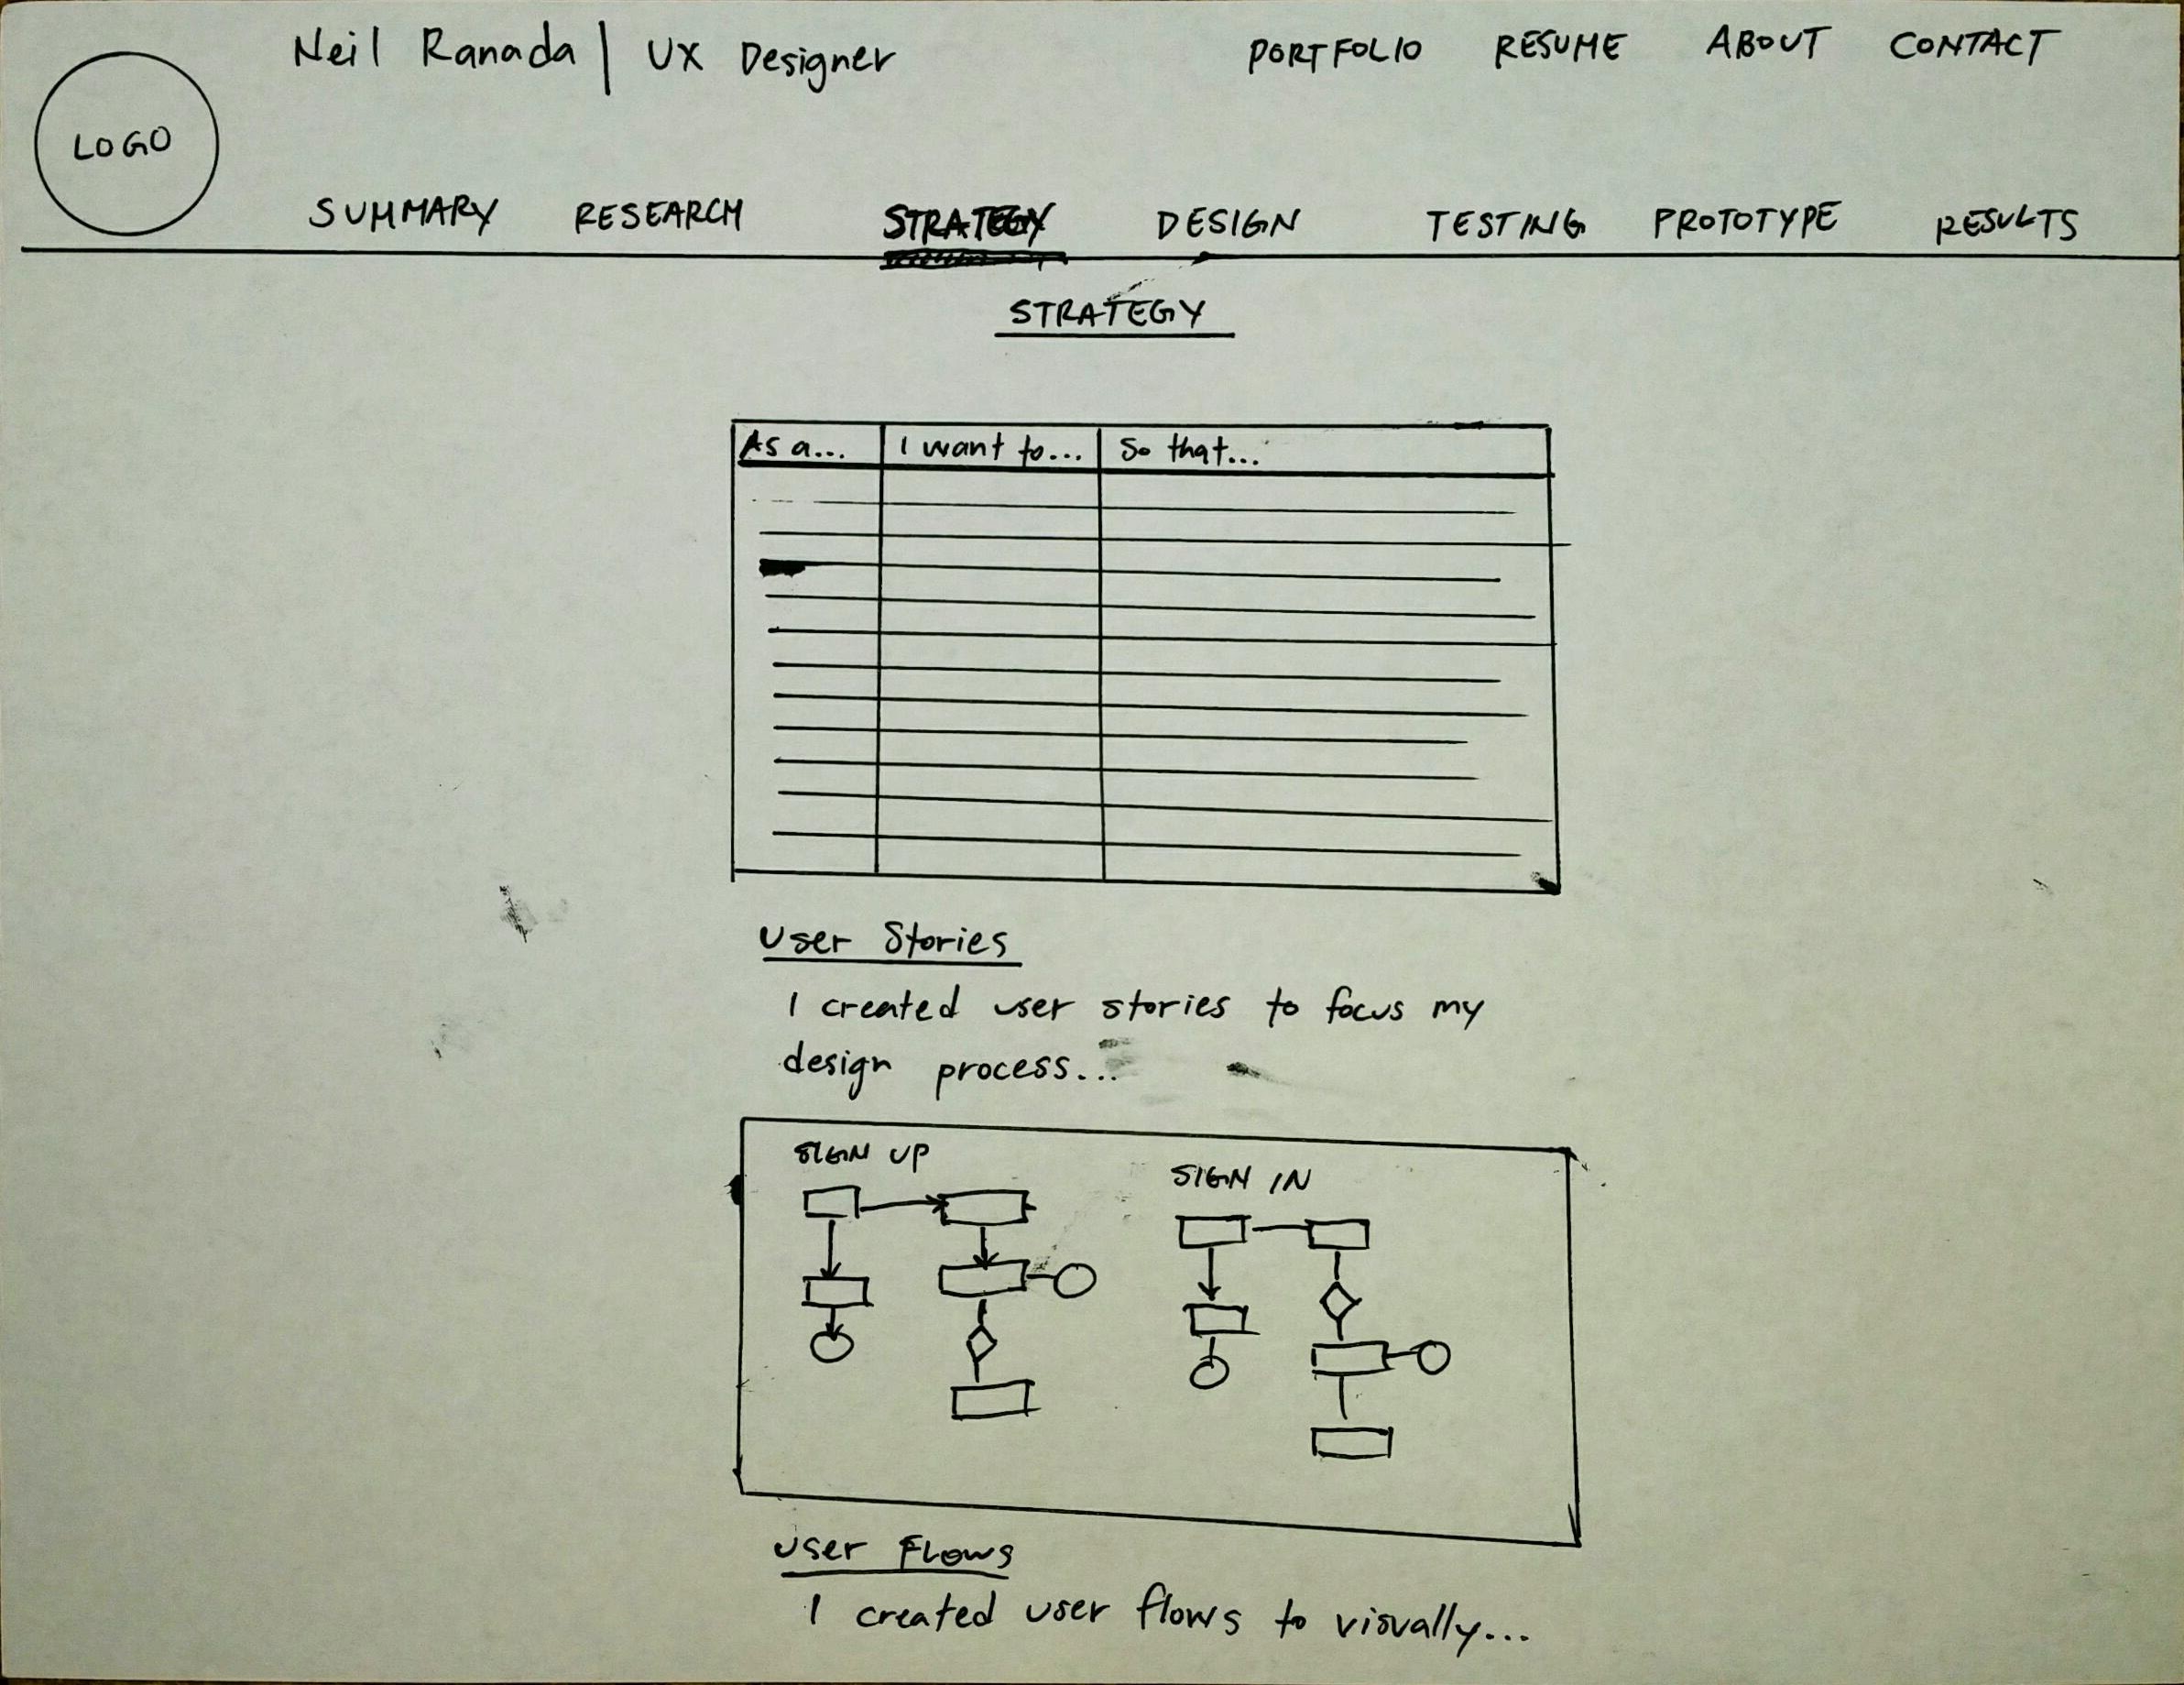 Neil Ranada | UX Designer
PORTFOLIO RESUME ABOUT CONTACT
LOGO
SUMMARY RESEARCH STRATEGY DESIGN TESTING PROTOTYPE RESULTS
STRATEGY
As a... I want to... So that...
User Stories
I created user stories to focus my
design process...
SIGN UP
SIGN IN
User Flows
I created user flows to visually...